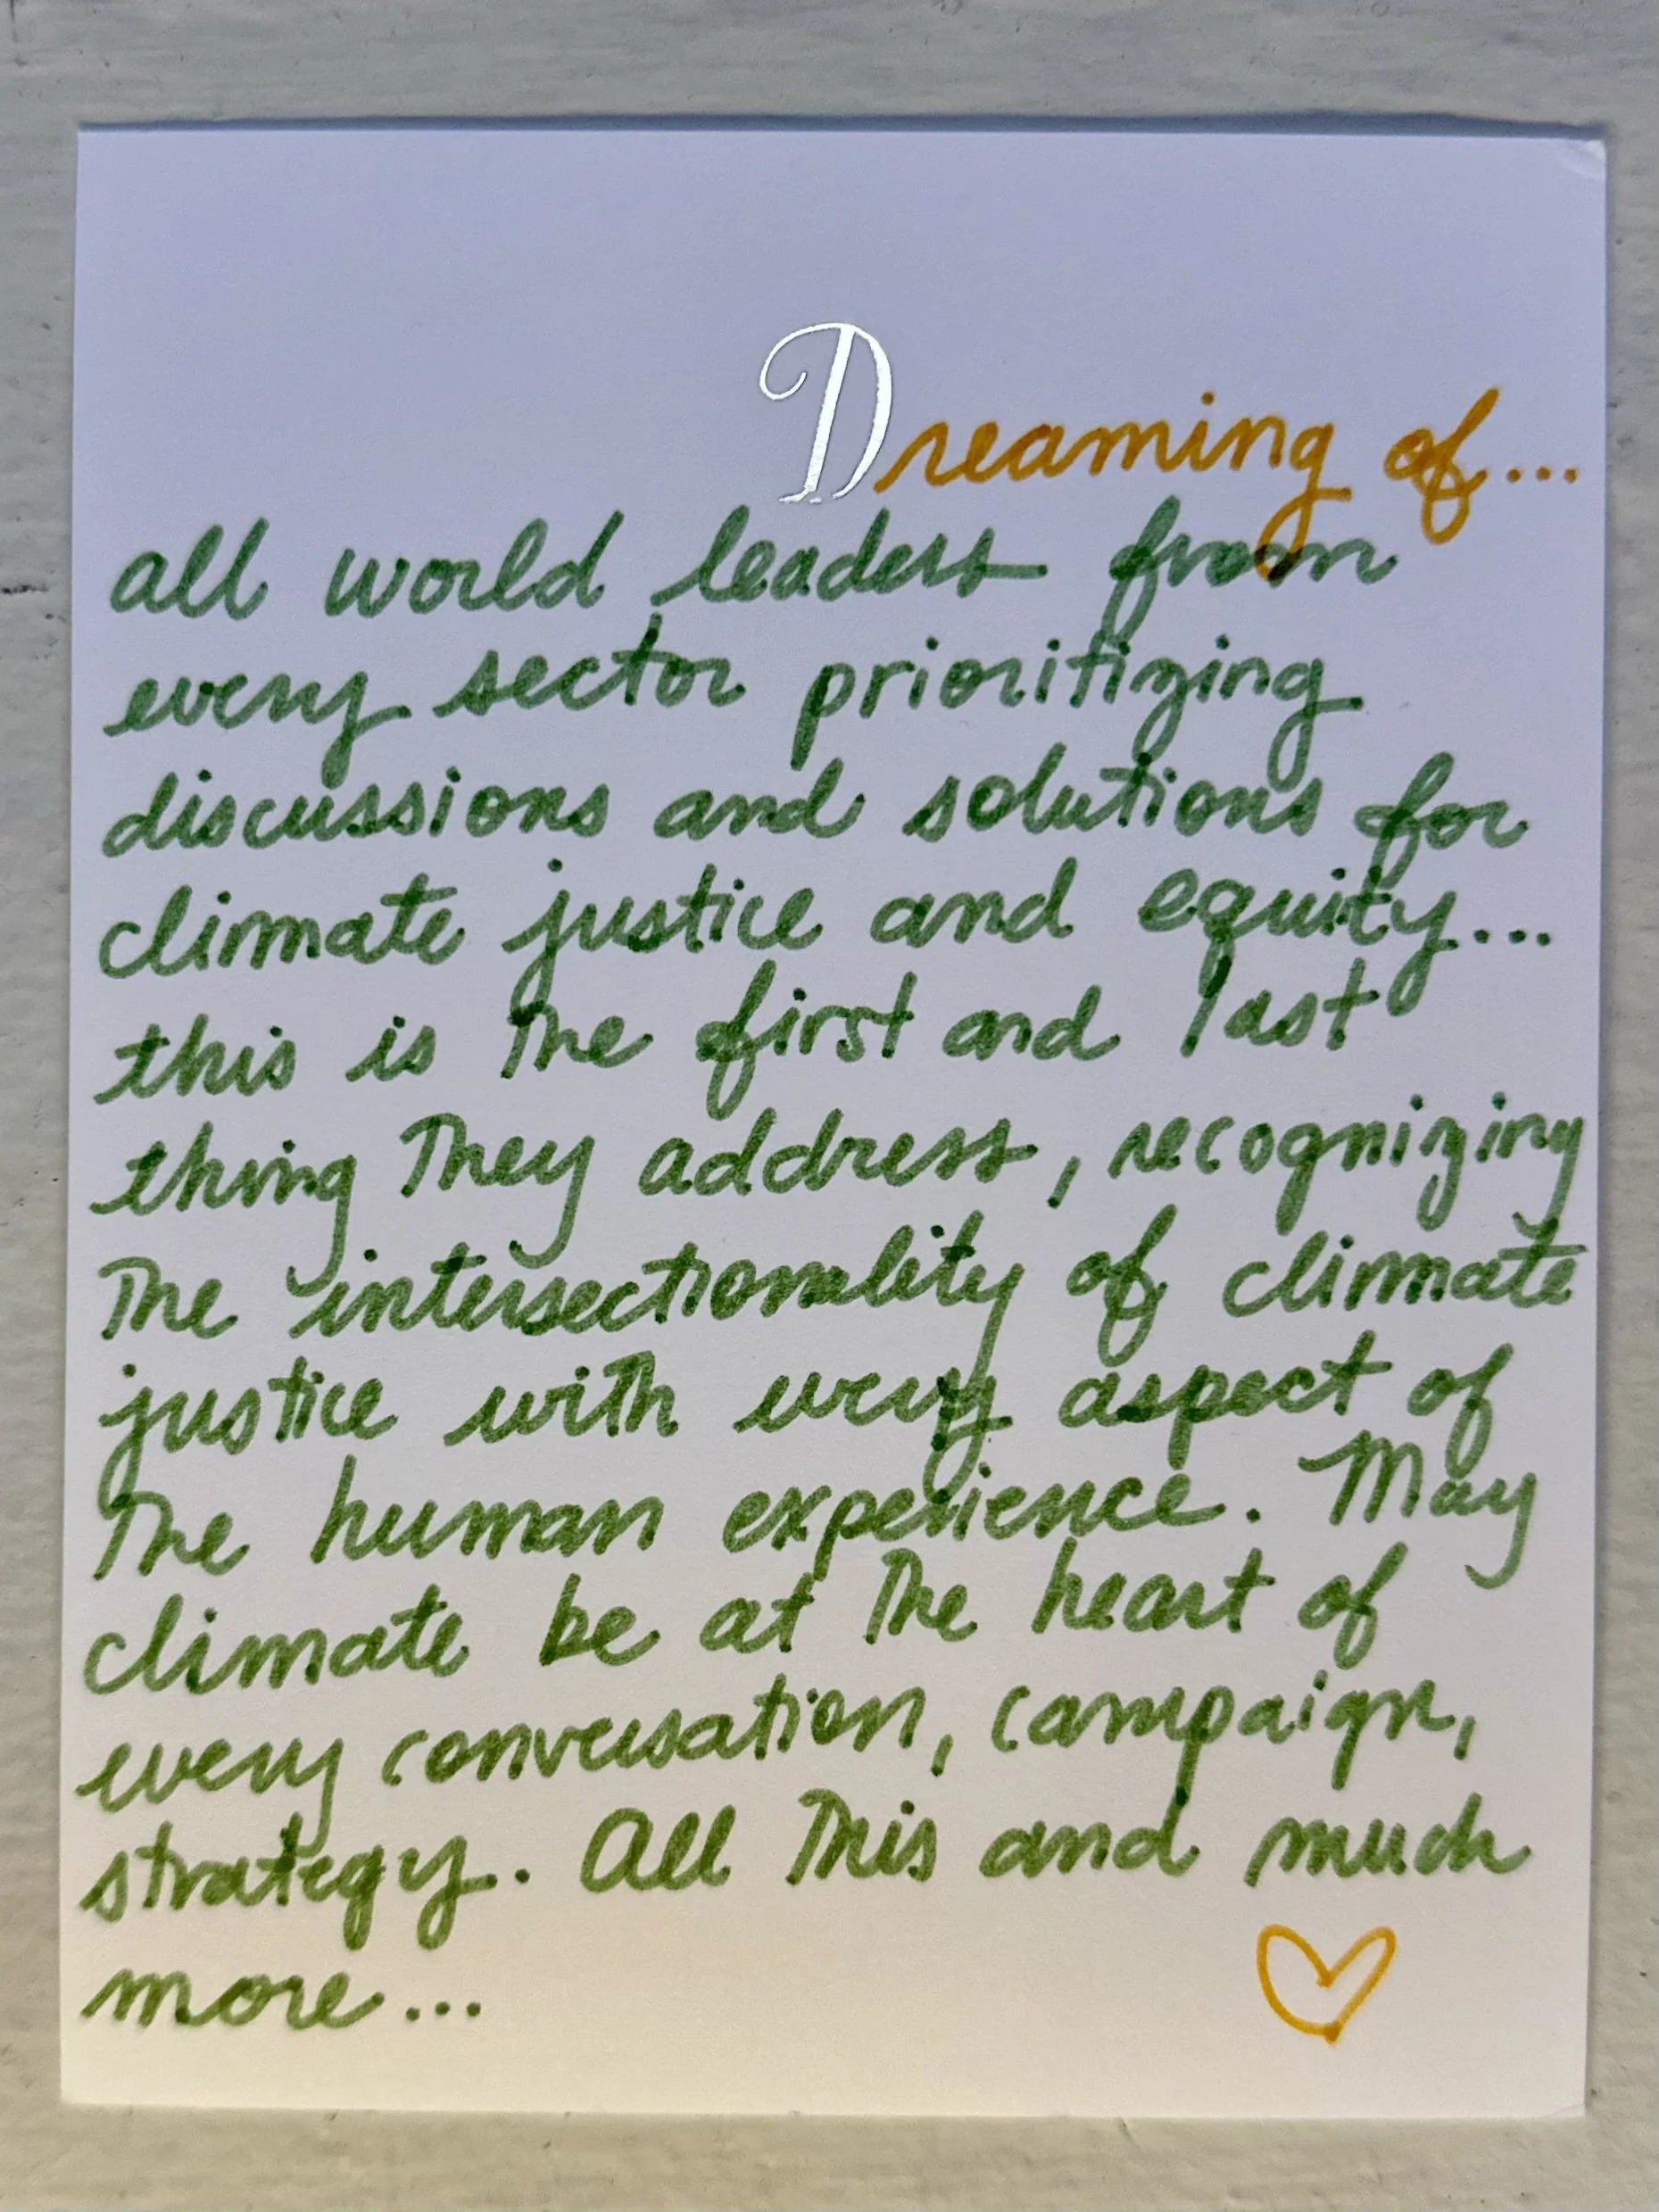 Dreaming of...
all world leaders from
every sector prioritizing
discussions and solutions for
climate justice and equity...
this is the first and last
thing they address, recognizing
The intersectionality of climate
justice with every aspect of
The human experience. May
climate be at the heart of
every conversation, campaign,
strategy. All This and much
more...